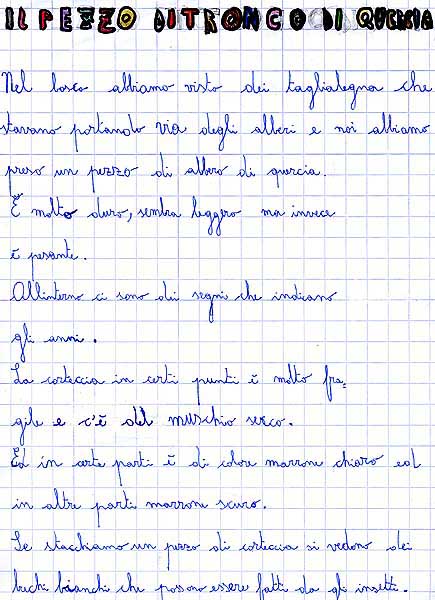 IL PEZZO DI TRONCO DI QUERCIA
Nel bosco abbiamo visto dei taglialegna che
stavano portando via degli alberi e noi abbiamo
preso un pezzo di albero di quercia.
È molto duro, sembra leggero ma invece
è pesante.
All'interno ci sono dei segni che indicano
gli anni.
La corteccia in certi punti è molto fra=
gile e c'è del muschio secco.
Ed in certe parti è di colore marrone chiaro ed
in altre parti marrone scuro.
Se stacchiamo un pezzo di corteccia si vedono dei
buchi bianchi che possono essere fatti da gli insetti.